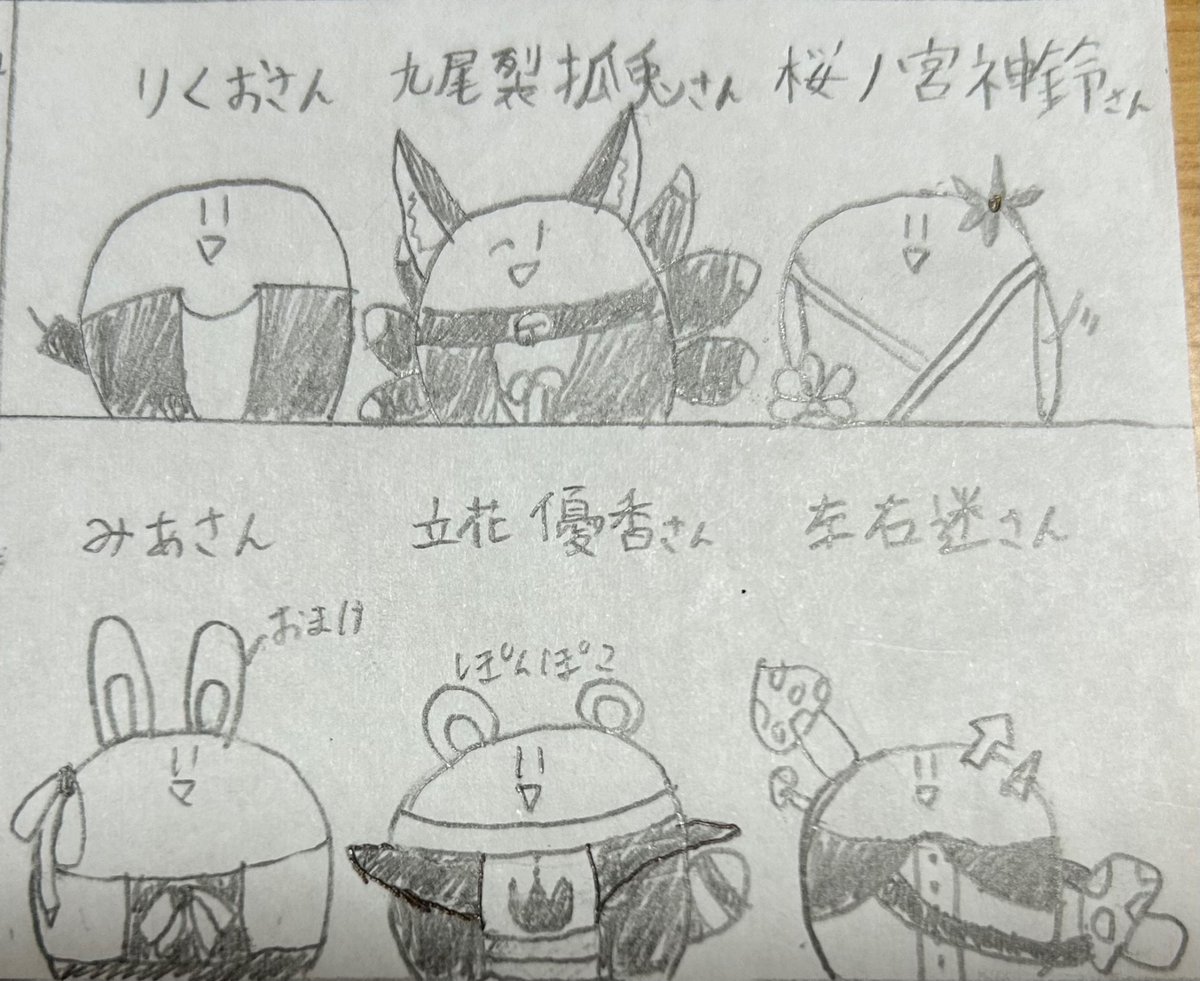 りくおさん
九尾裂狐兎さん
桜ノ宮神鈴さん
みあさん
立花優香さん
左右迷さん
おまけ
ぽんぽこ